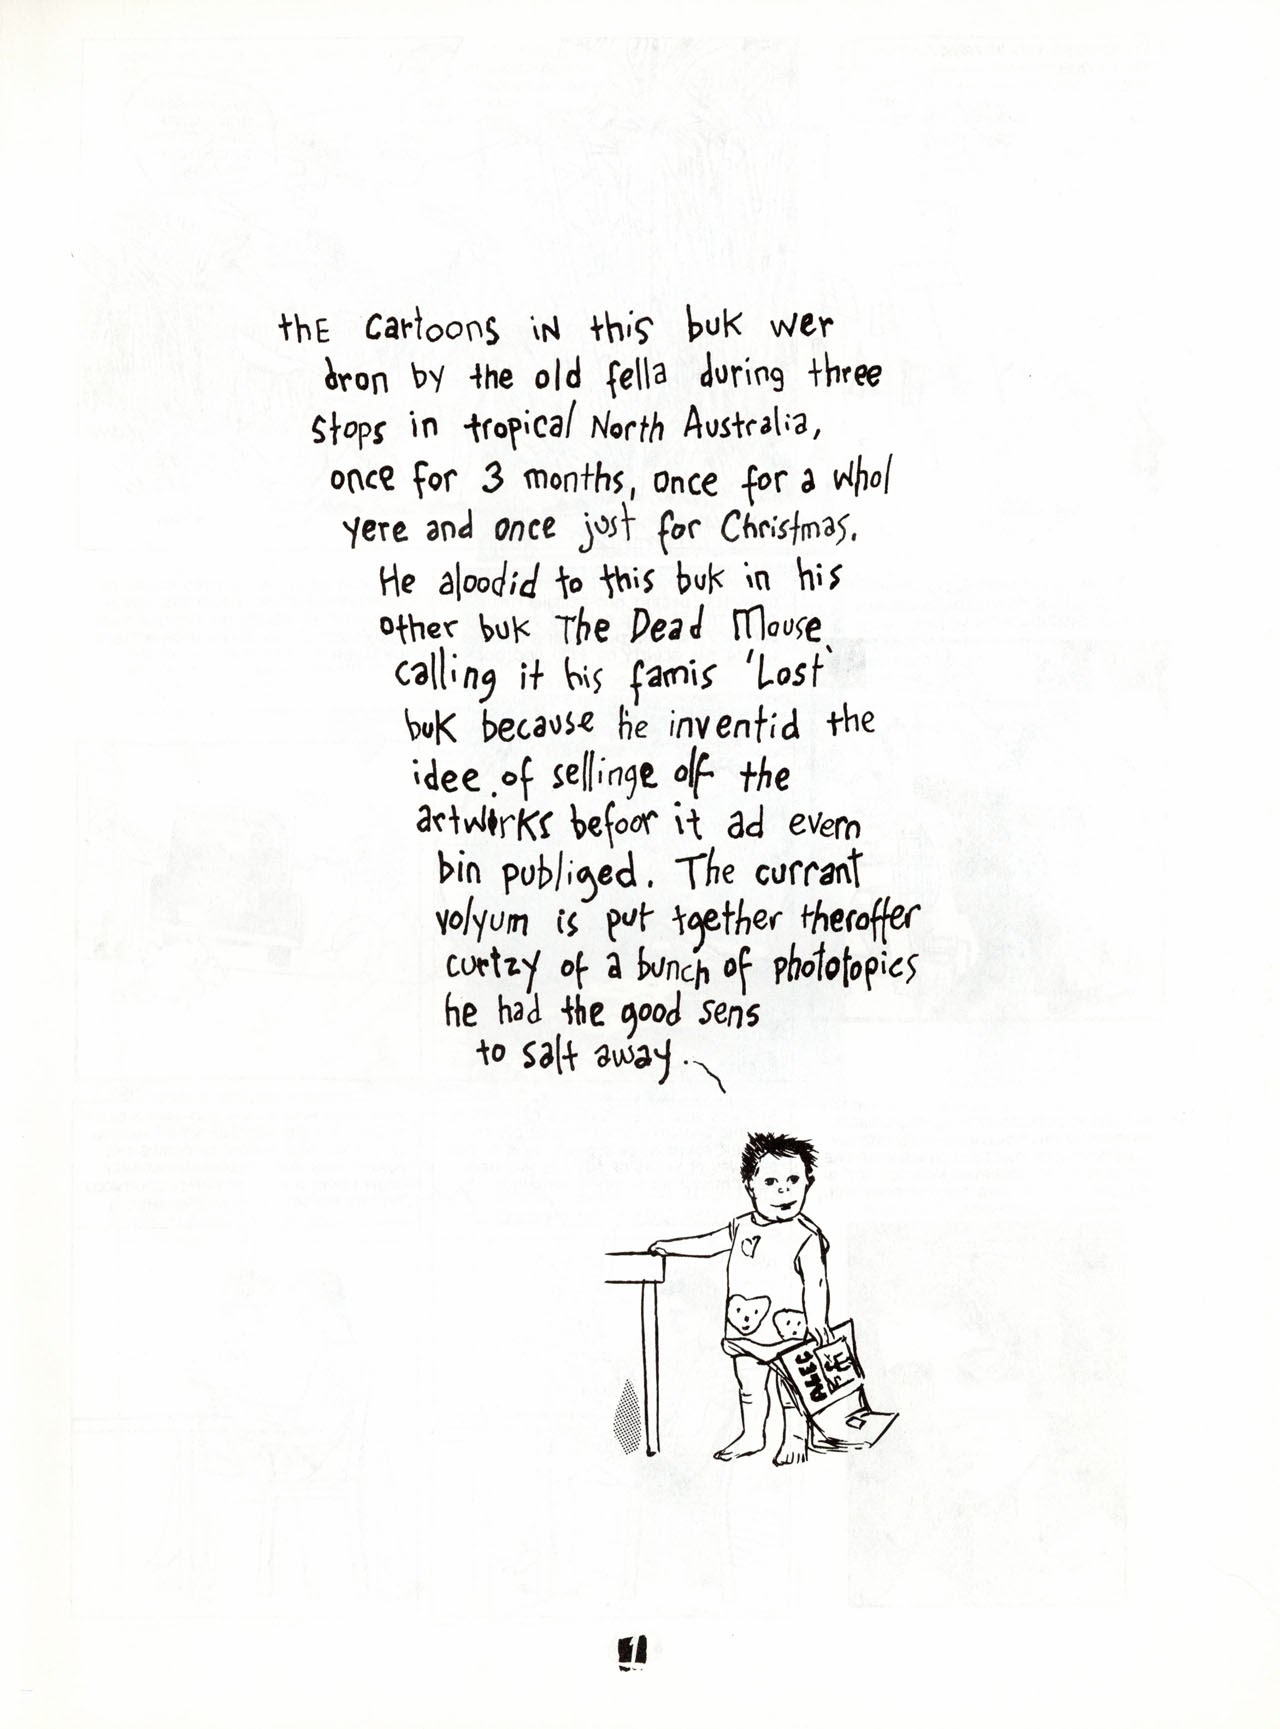 thE cartoons iN this buk wer
dron by the old fella during three
stops in tropical North Australia,
once for 3 months, once for a whol
yere and once just for Christmas.
He aloodid to this buk in his
other buk The Dead Mouse
calling it his famis 'Lost'
buk because he inventid the
idee of sellinge olf the
artwirks befoor it ad evern
bin publiged. The currant
volyum is put tgether theroffer
curtzy of a bunch of phototopies
he had the good sens
to salt away.
ALEC
1